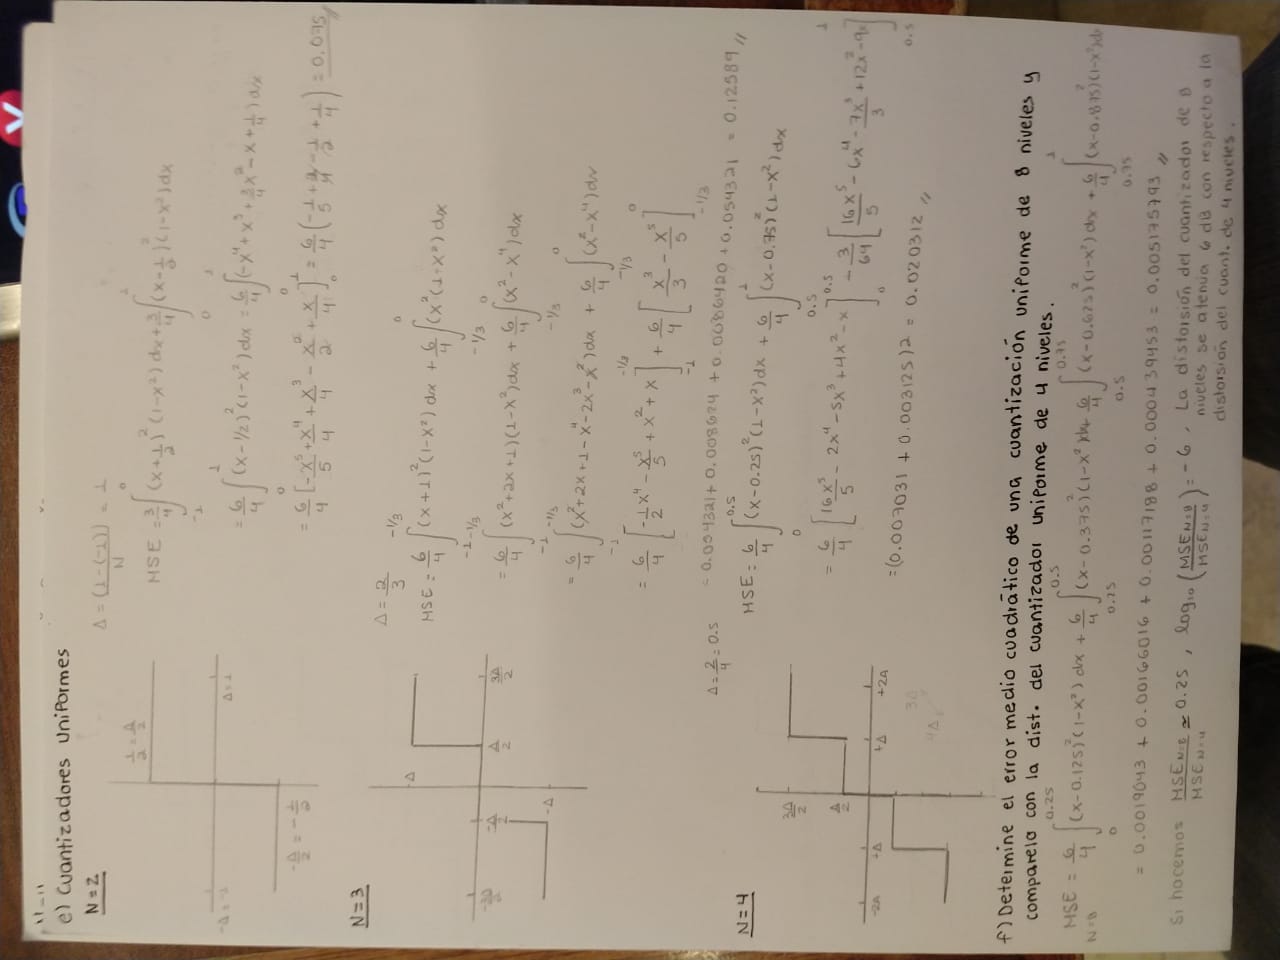 e) Cuantizadores Uniformes
N=2
Δ = (1-(-1))/N = 1
1/2 = Δ/2
-Δ = -1
Δ=1
-Δ/2 = -1/2
MSE = 3/4 ∫_{-1}^{0} (x+1/2)² (1-x²) dx + 3/4 ∫_{0}^{1} (x-1/2)² (1-x²) dx
= 6/4 ∫_{0}^{1} (x-1/2)² (1-x²) dx = 6/4 ∫_{0}^{1} (-x⁴ + x³ + 3/4 x² - x + 1/4) dx
= 6/4 [-x⁵/5 + x⁴/4 + x³/4 - x²/2 + x/4]_{0}^{1} = 6/4 (-1/5 + 2/4 - 1/2 + 1/4) = 0.075 //
N=3
Δ = 2/3
Δ
-3Δ/2
-Δ/2
Δ/2
3Δ/2
-Δ
MSE = 6/4 ∫_{-1}^{-1/3} (x+1)² (1-x²) dx + 6/4 ∫_{-1/3}^{0} (x² (1-x²) dx
= 6/4 ∫_{-1}^{-1/3} (x²+2x+1)(1-x²) dx + 6/4 ∫_{-1/3}^{0} (x²-x⁴) dx
= 6/4 ∫_{-1}^{-1/3} (x²+2x+1-x⁴-2x³-x²) dx + 6/4 ∫_{-1/3}^{0} (x²-x⁴) dx
= 6/4 [-1/2 x⁴ - x⁵/5 + x² + x]_{-1}^{-1/3} + 6/4 [x³/3 - x⁵/5]_{-1/3}^{0}
= 0.054321 + 0.008624 + 0.0086420 + 0.054321 = 0.12589 //
Δ = 2/4 = 0.5
N=4
3Δ/2
Δ/2
-2Δ
+Δ
+Δ
+2Δ
3Δ
4Δ
MSE = 6/4 ∫_{0}^{0.5} (x-0.25)² (1-x²) dx + 6/4 ∫_{0.5}^{1} (x-0.75)² (1-x²) dx
= 6/4 [16x⁵/5 - 2x⁴ - 5x³ + 4x² - x]_{0}^{0.5} - 3/64 [16x⁵/5 - 6x⁴ - 7x³/3 + 12x² - 9x]_{0.5}^{1}
= (0.007031 + 0.003125)2 = 0.020312 //
f) Determine el error medio cuadrático de una cuantización uniforme de 8 niveles y
comparelo con la dist. del cuantizador uniforme de 4 niveles.
MSE_{N=8} = 6/4 ∫_{0}^{0.25} (x-0.125)² (1-x²) dx + 6/4 ∫_{0.25}^{0.5} (x-0.375)² (1-x²) dx + 6/4 ∫_{0.5}^{0.75} (x-0.625)² (1-x²) dx + 6/4 ∫_{0.75}^{1} (x-0.875)² (1-x²) dx
= 0.0019043 + 0.00166016 + 0.00117188 + 0.000439453 = 0.005175793 //
Si hacemos MSE_{N=8}/MSE_{N=4} ≃ 0.25, log₁₀ (MSE_{N=8}/MSE_{N=4}) = -6, La distorsión del cuantizador de 8
niveles se atenúa 6 dB con respecto a la
distorsión del cuant. de 4 niveles.